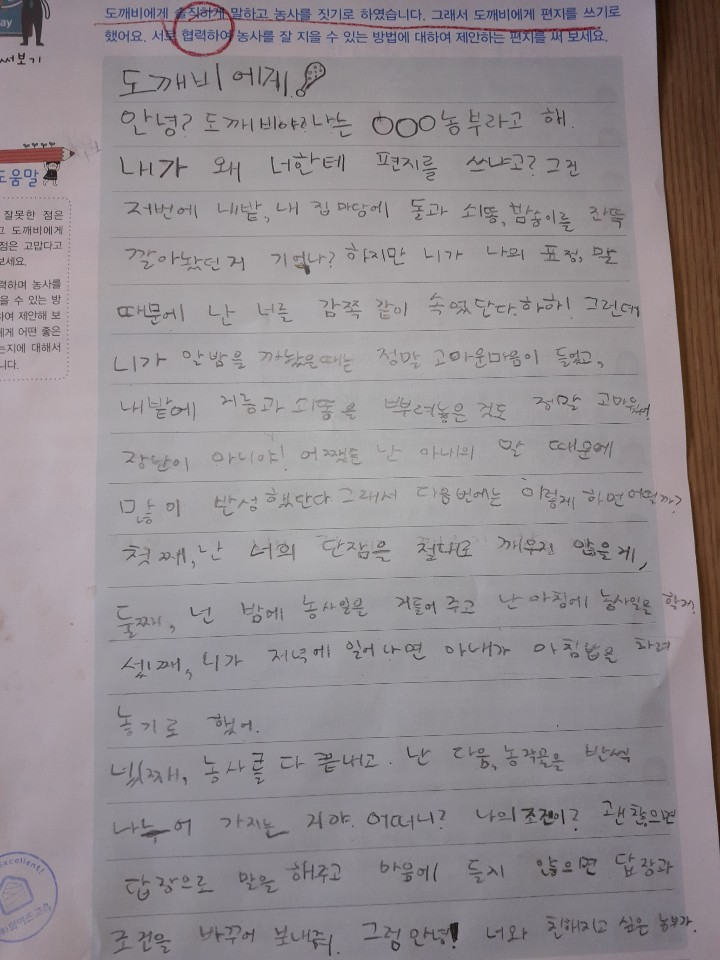 ay
도깨비에게 솔직하게 말하고 농사를 짓기로 하였습니다. 그래서 도깨비에게 편지를 쓰기로
했어요. 서로 협력하여 농사를 잘 지을 수 있는 방법에 대하여 제안하는 편지를 써 보세요.
써보기
도움말
잘못한 점은
고 도깨비에게
점은 고맙다고
보세요.
력하며 농사를
을 수 있는 방
하여 제안해 보
에게 어떤 좋은
는지에 대해서
니다.
도깨비에게
안녕? 도깨비야? 나는 ○○○농부라고 해.
내가 왜 너한테 편지를 쓰냐고? 그건
저번에 내밭, 내 집 마당에 돌과 쇠똥, 밤송이를 잔뜩
깔아놨던 거 기억나? 하지만 니가 나의 표정, 말
때문에 난 너를 감쪽 같이 속였단다. 하하! 그런데
니가 알밤을 까놨을때는 정말 고마운마음이 들었고,
내밭에 거름과 쇠똥을 뿌려놓은 것도 정말 고마웠어!
장난이 아니야! 어쨌든 난 아내의 말 때문에
많이 반성했단다. 그래서 다음번에는 이렇게 하면 어떨까?
첫째, 난 너희 단잠을 절대로 깨우진 않을게,
둘째, 넌 밤에 농사일을 거들어 주고 난 아침에 농사일을 할게!
셋째, 니가 저녁에 일어나면 아내가 아침밥을 차려
놓기로 했어.
넷째, 농사를 다 끝내고. 난 다음, 농작물을 반씩
나누어 가지는 거야. 어떠니? 나의 조건이? 괜찮으면
답장으로 말을 해주고 마음에 들지 않으면 답장과
조건을 바꾸어 보내줘. 그럼 안녕! 너와 친해지고 싶은 농부가.
Excellent!